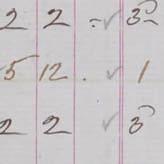 2 2 :- ✓ 3-
5 12 . ✓ 1
2 2 ✓ 3